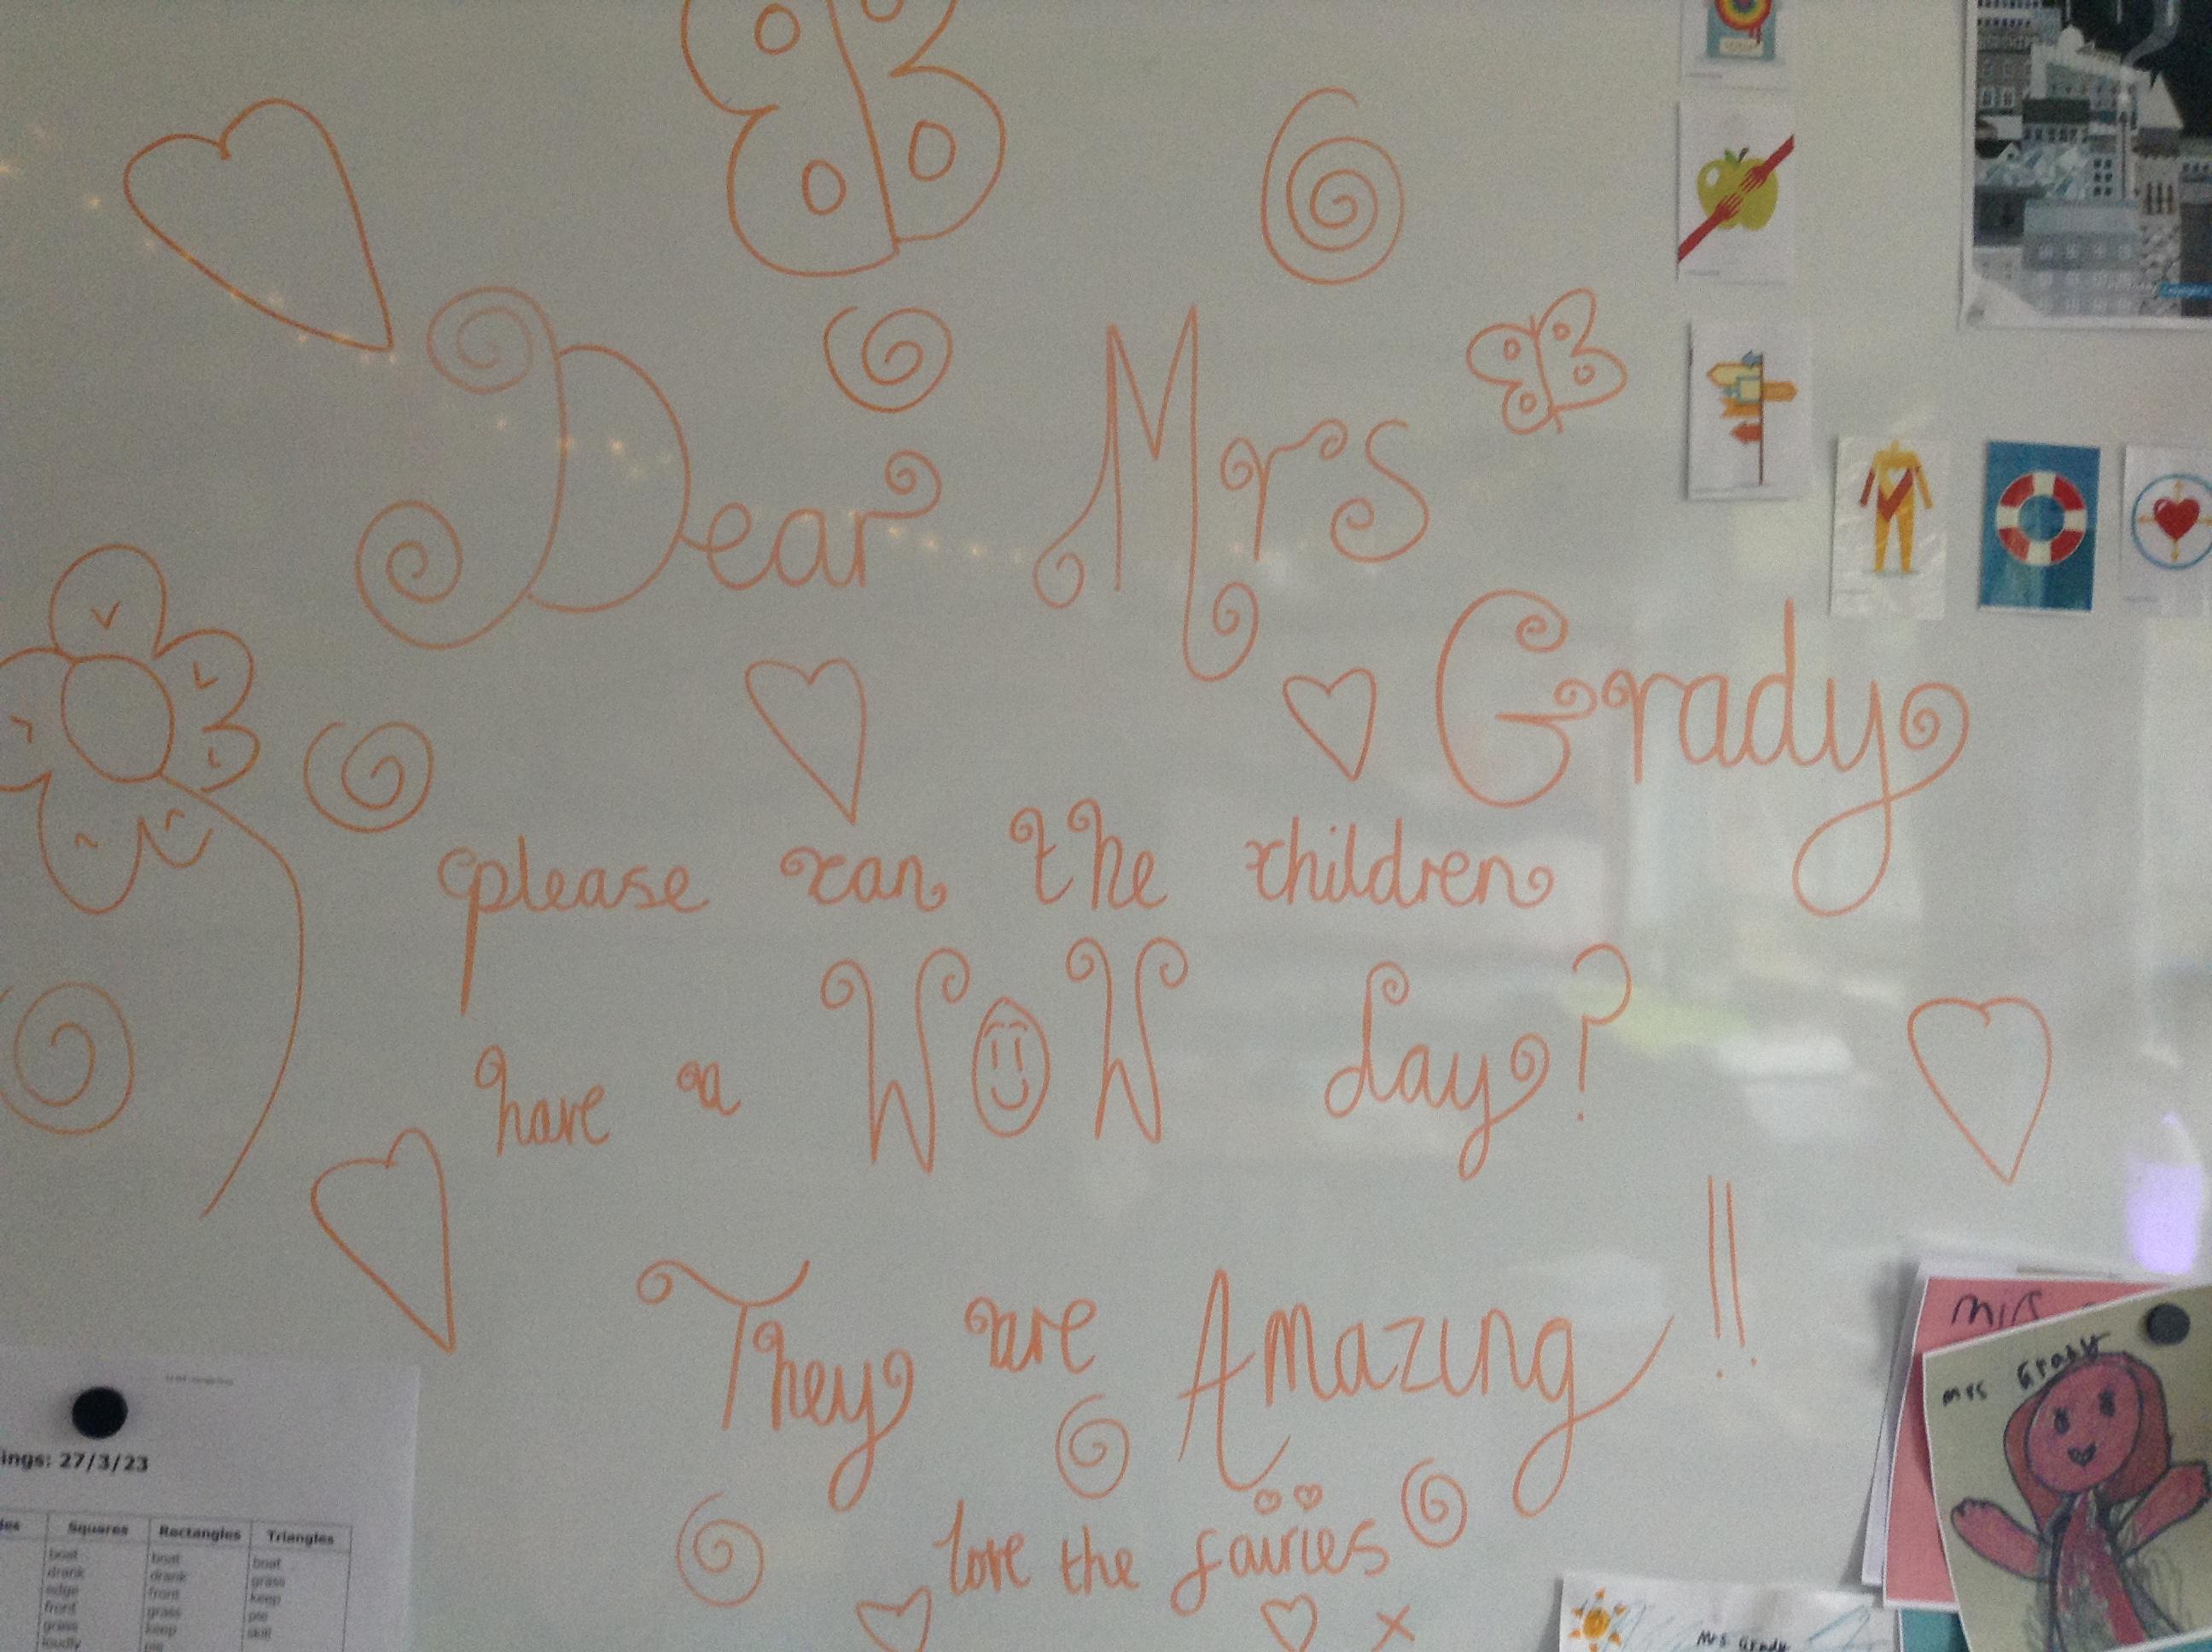 Dear Mrs
Grady
please can the children
have a WOW day?
They are Amazing!!
love the fairies
x
ings: 27/3/23
Squares Rectangles Triangles
boat boat boat
drank drank grass
edge front keep
front grass pie
grass keep skill
loudly pie
Mrs
Mrs Grady
Mrs Grady